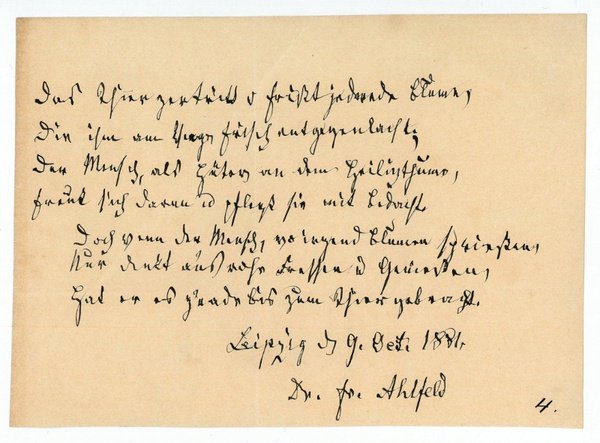 Das Thier zertritt u frißt jedwede Blume,
Die ihm am Wege frisch entgegenlacht;
Der Mensch, als Hüter an dem Heiligthume,
freut sich daran u pflegt sie mit Bedacht.
Doch wenn der Mensch, wo irgend Blumen sprießen,
Nur denkt ans rohe Fressen u Genießen,
Hat er es g'rade bis zum Thier gebracht.
Leipzig d 9. Oct. 1881.
Dr. Fr. Ahlfeld
4.